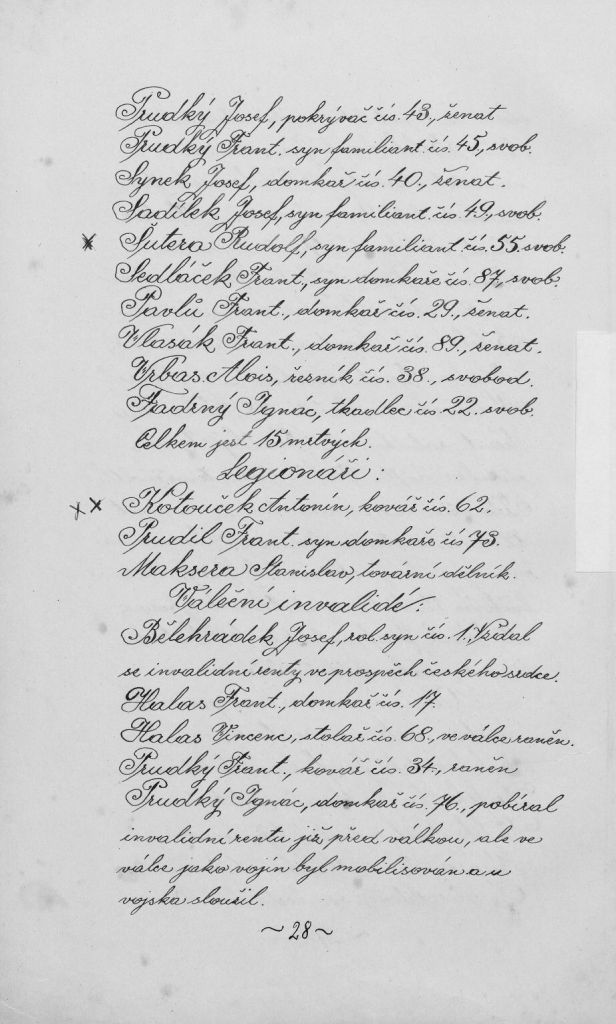 Prudký Josef, pokrývač čís. 43., ženat
Prudký Frant. syn familiant. čís. 45., svob.
Synek Josef, domkař čís. 40., ženat.
Sadílek Josef, syn familiant. čís. 49., svob.
x Šutera Rudolf, syn familiant. čís. 55. svob.
Sedláček Frant., syn domkaře čís. 87., svob.
Pavlů Frant., domkař čís. 29., ženat.
Vlasák Frant., domkař čís. 89., ženat.
Vrbas Alois, řezník čís. 38., svobod.
Fadrný Ignác, tkadlec čís 22. svob.
Celkem jest 15 mrtvých.
Legionáři:
x x Kotouček Antonín, kovář čís. 62.
Prudil Frant. syn domkaře čís 73.
Maksera Stanislav, tovární dělník.
Váleční invalidé:
Bělehrádek Josef, rol. syn čís. 1., Vzdal
se invalidní renty ve prospěch českého srdce.
Halas Frant., domkař čís. 17.
Halas Vincenc, stolař čís. 68., ve válce raněn.
Prudký Frant., kovář čís. 34., raněn
Prudký Ignác, domkař čís. 76., pobíral
invalidní rentu již před válkou, ale ve
válce jako vojín byl mobilisován a u
vojska sloužil.
~ 28 ~